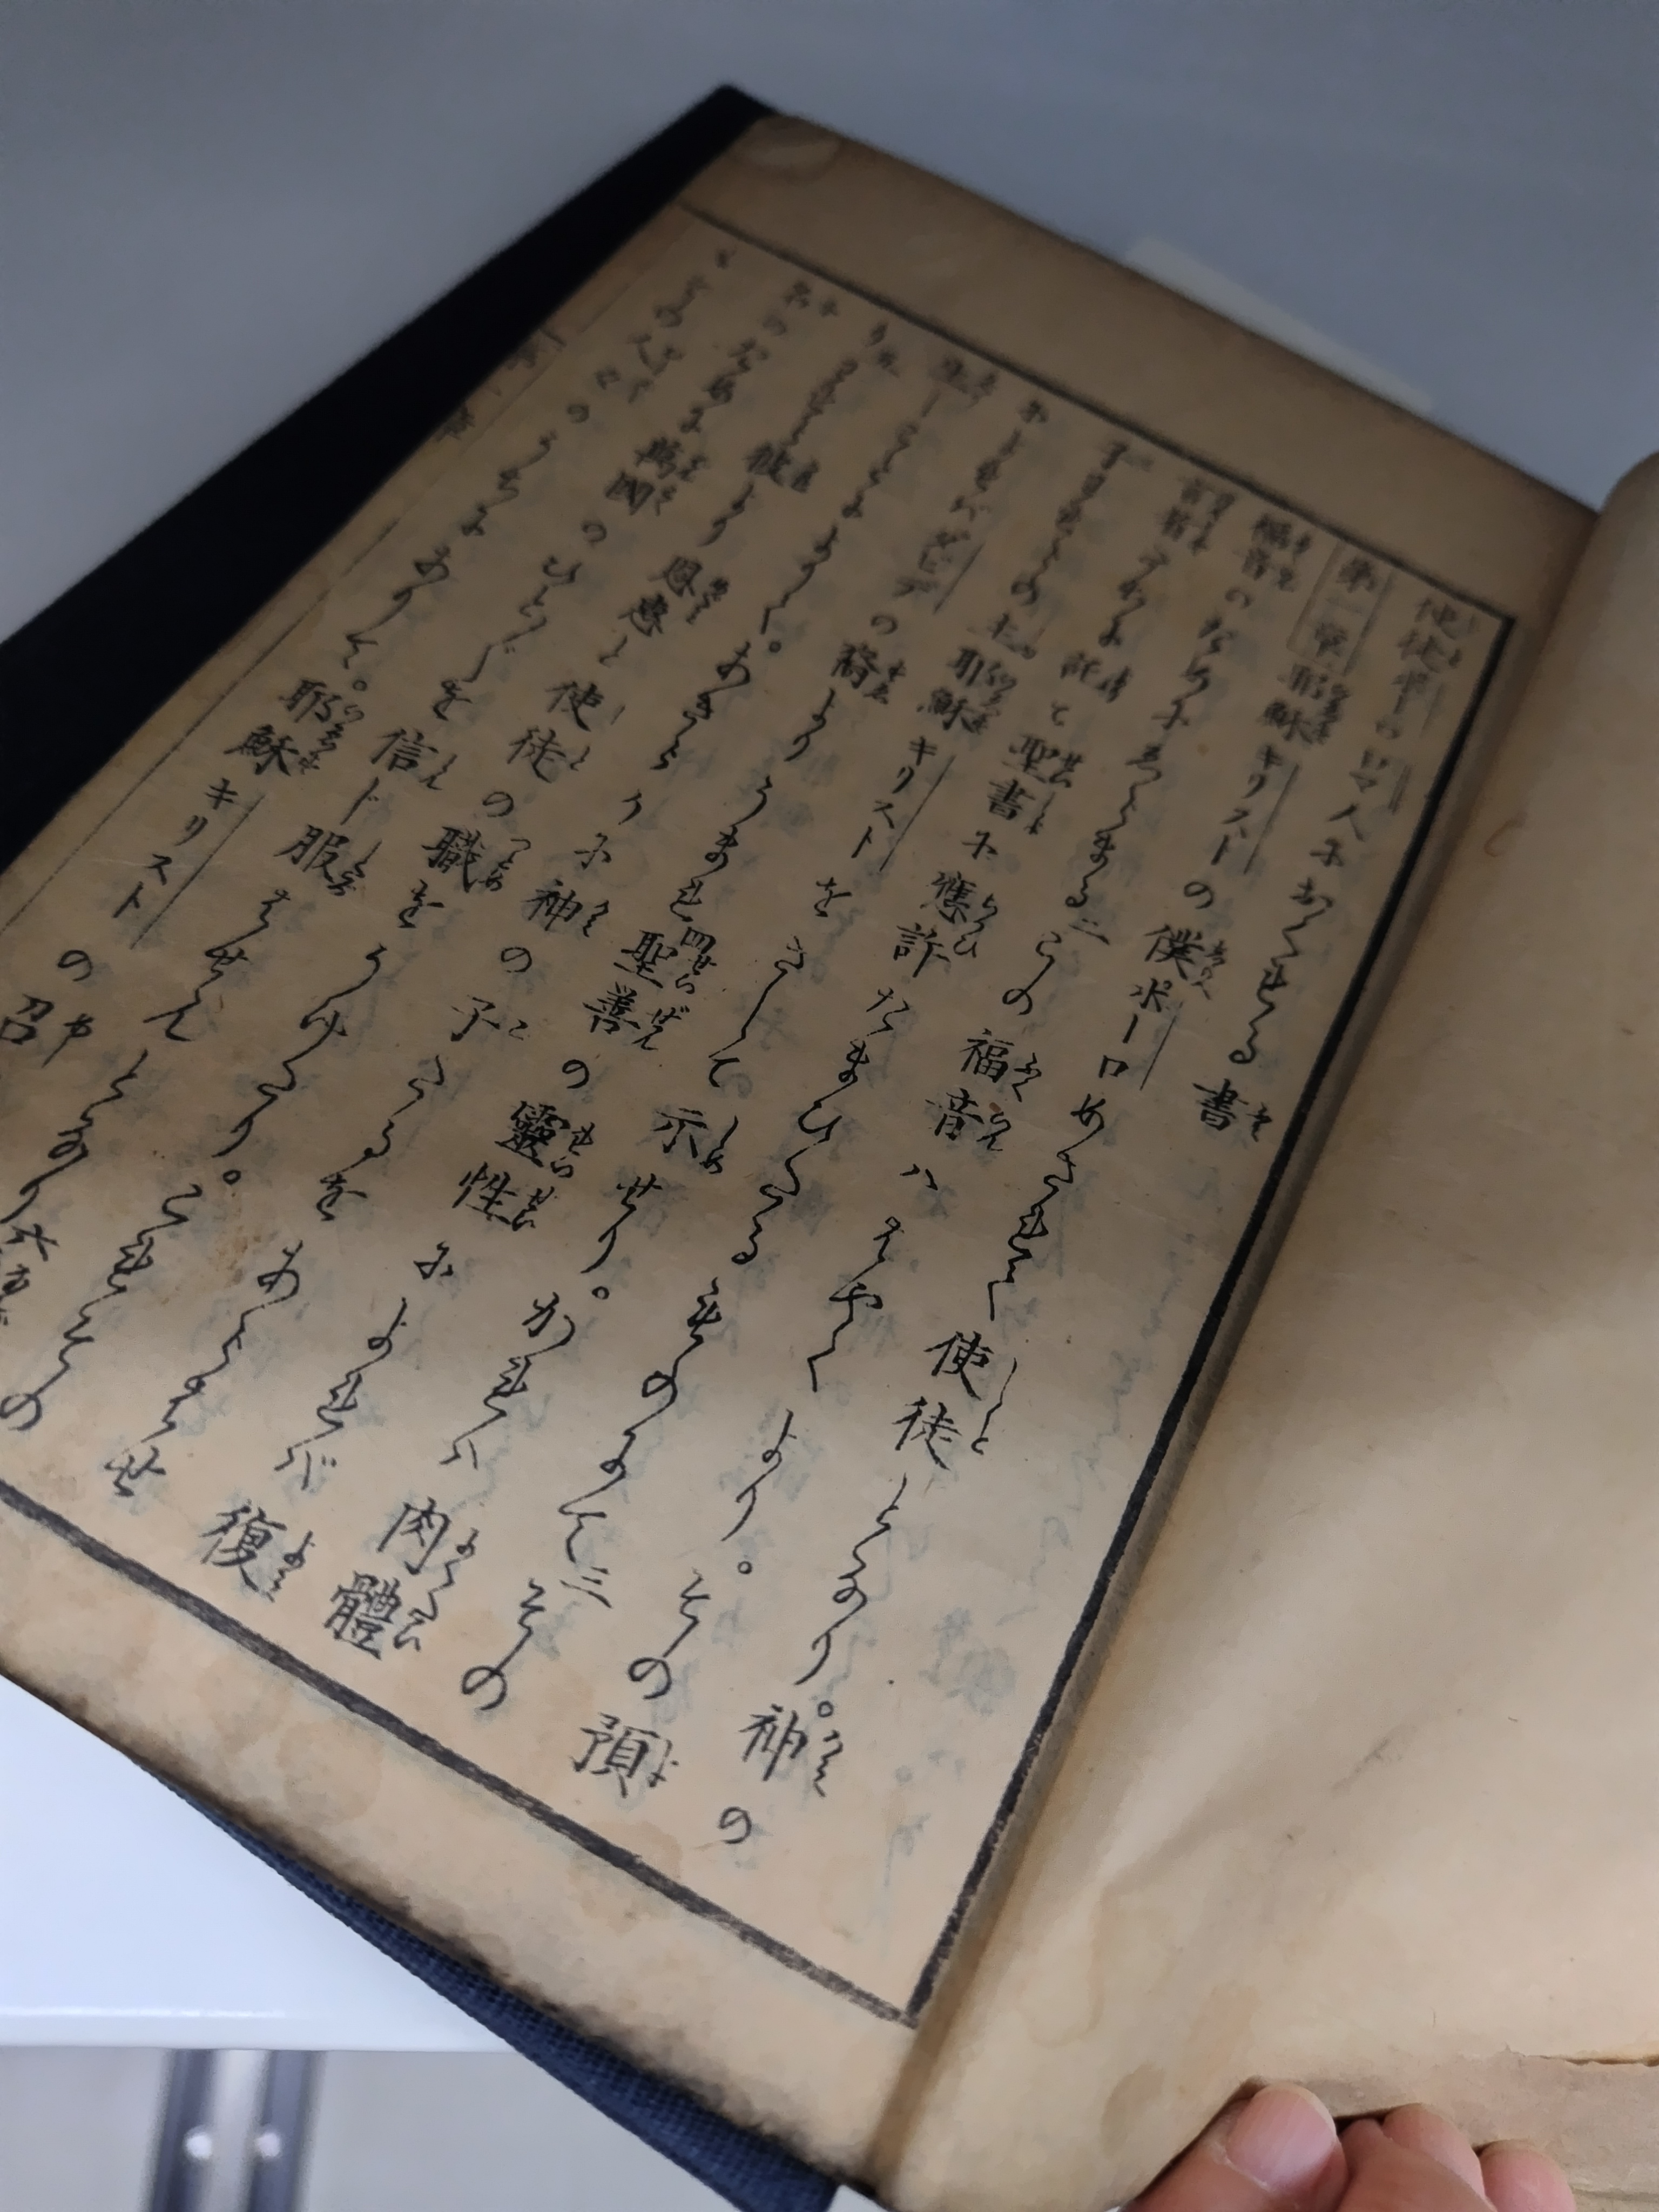 使徒ポーロロマ人におくれる書
第一章 耶穌キリストの僕ポーロめされて使徒となり。神の
福音のためにえらまる二この福音ハはやくより。その預
言者たちに託て聖書に應許たまひたるものにて三その
子われらの主耶穌キリストをさして示せり。かれハ肉體
によれバダビデの裔よりうまれ四聖善の靈性によれバ復
生しことによりて。あきらかに神の子たることをあらハせ
り五われら彼より恩惠と使徒の職をうけたり。これその
名のために萬國のひとびとを信ド服はせてとなり六
その人々のうちにありて。耶穌キリストの召